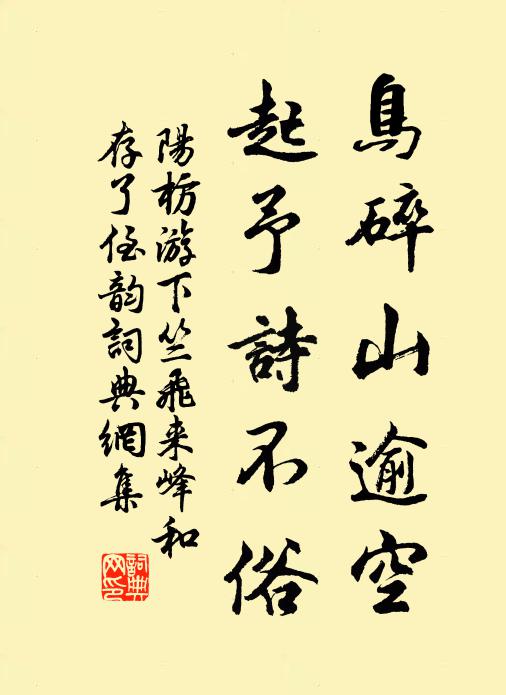 鳥碎山逾空
起予詩不俗
陽枋游下竺飛来峰和
存了侄韵詞典網集
詞典网印